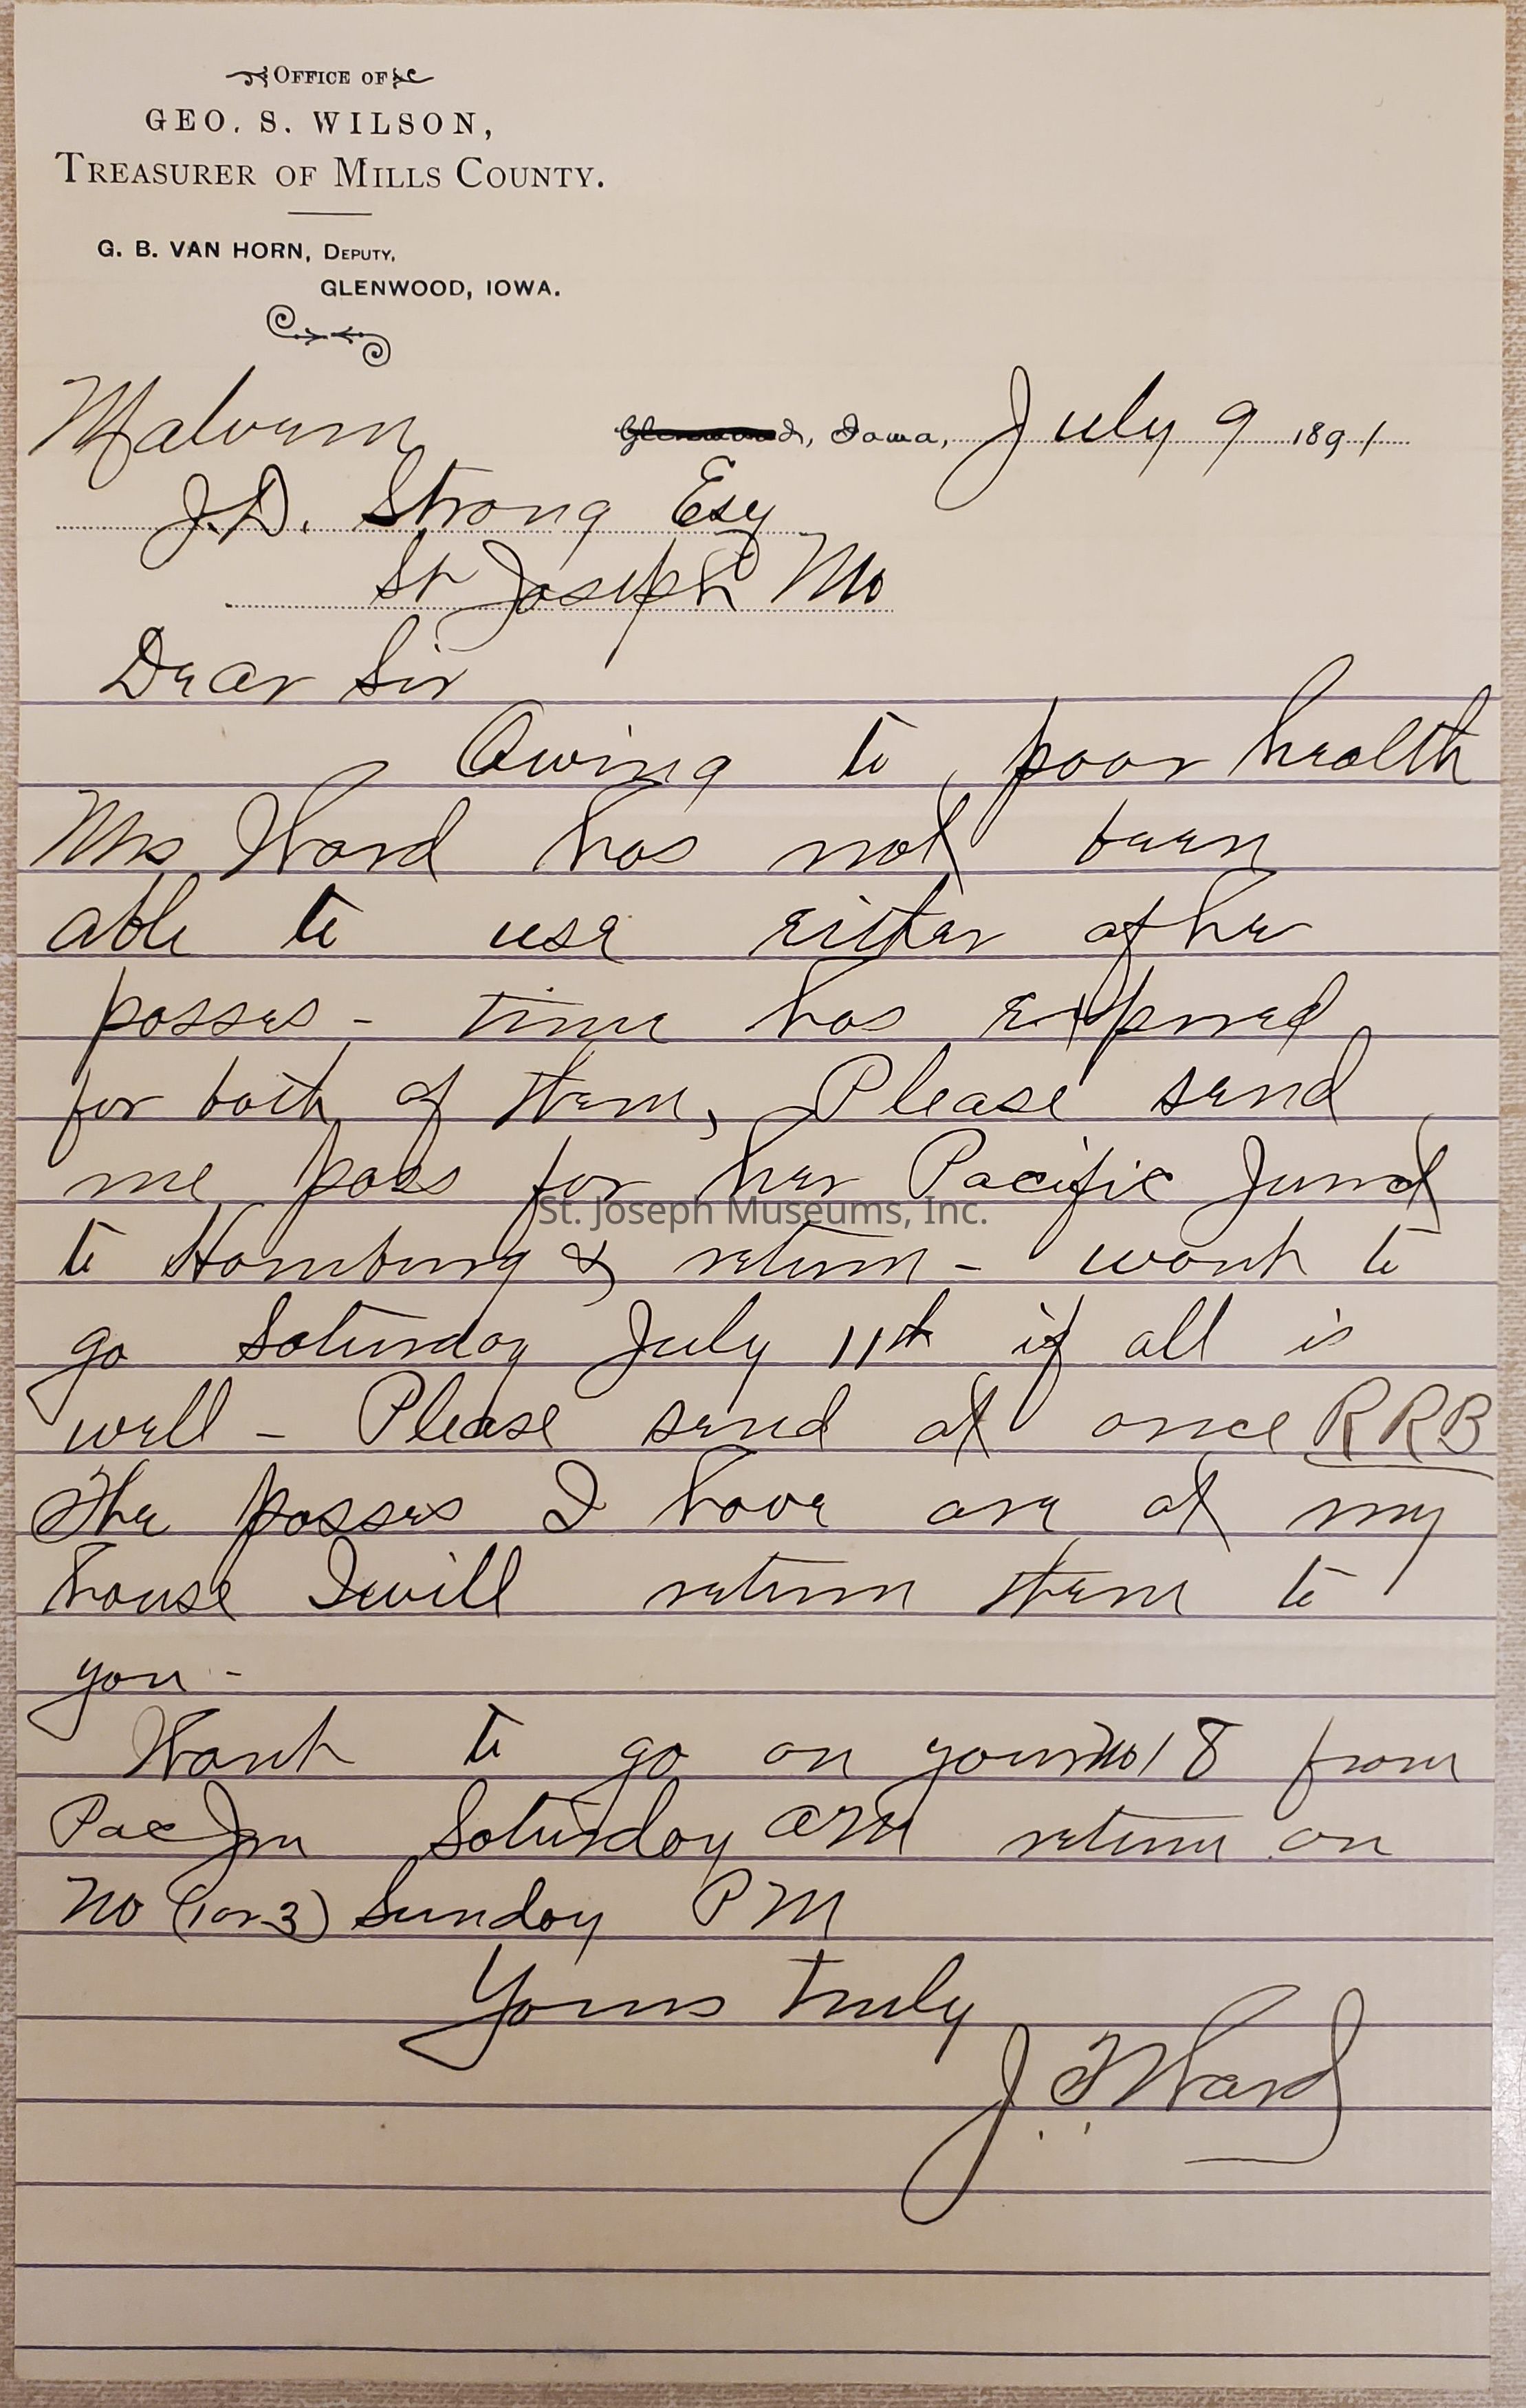 OFFICE OF
GEO. S. WILSON,
TREASURER OF MILLS COUNTY.
G. B. VAN HORN, DEPUTY,
GLENWOOD, IOWA.
Malvern Glenwood, Iowa, July 9 1891
J.D. Strong Esq
St Joseph Mo
Dear Sir
Owing to poor health
Mrs Ward has not been
able to use either of her
passes - time has expired
for both of them, Please send
me pass for her Pacific Junct
to Hamburg & return - want to
go Saturday July 11th if all is
well - Please send at once RRB
The passes I have are at my
house I will return them to
you -
Want to go on your No 18 from
Pac Jun Saturday am return on
No (1 or 3) Sunday PM
Yours truly
Ward
St. Joseph Museums, Inc.